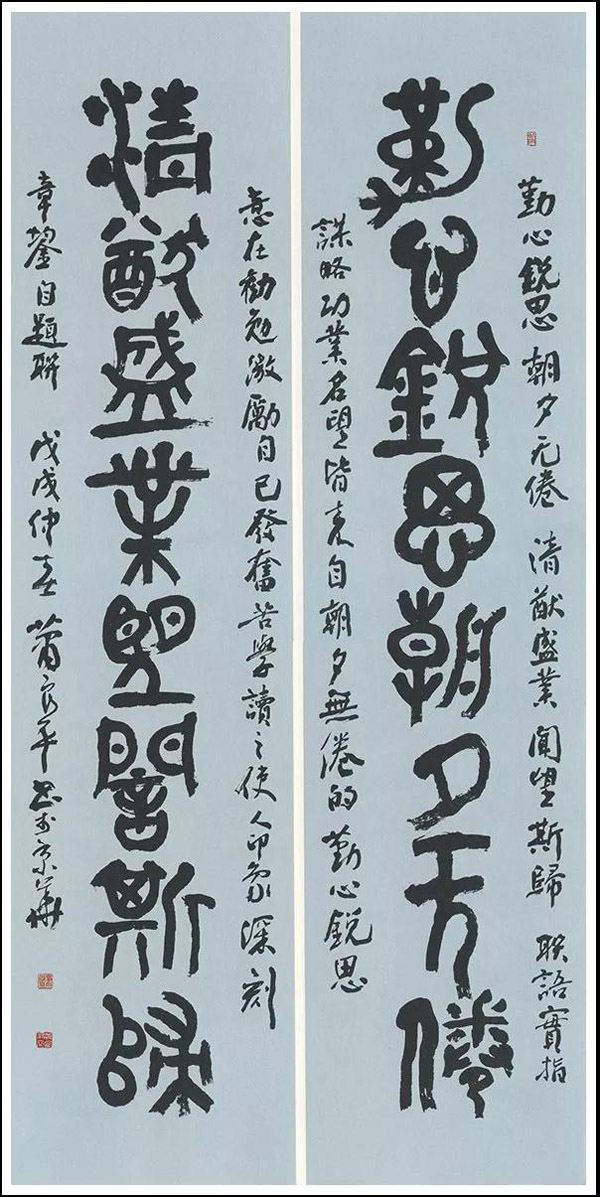 勤心鋭思 朝夕无倦 清猷盛業 聞望斯歸 联語實指
勤心鋭思朝夕无倦
謀略功業名望皆来自朝夕無倦的勤心鋭思
意在勸勉激勵自己發奮苦學讀之使人印象深刻
清猷盛業望聞斯歸
章鋆自題聯 戊戌仲春 蕭 平书於京華